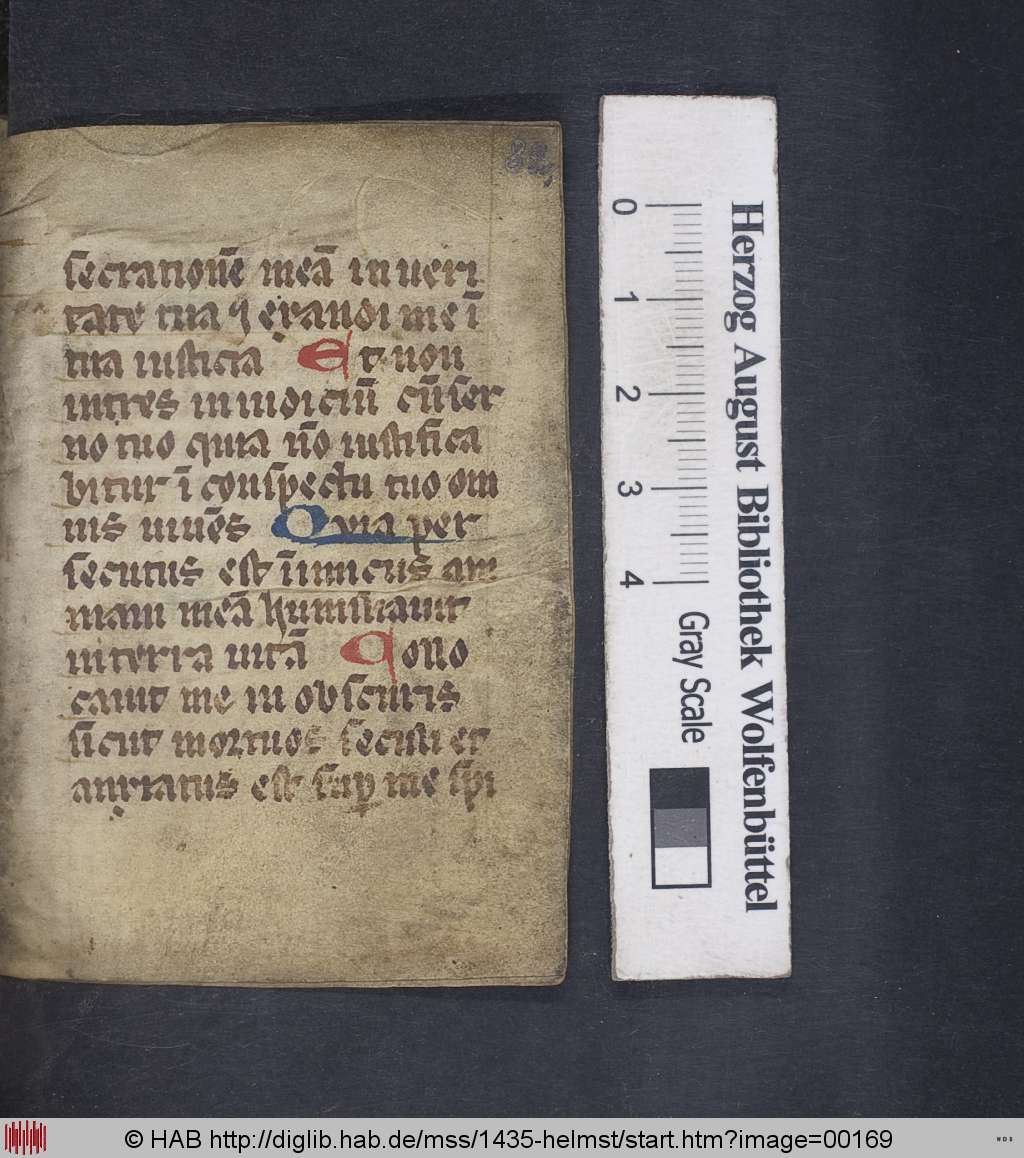 82
secrationē meā in ueri
tate tua ⁊ exaudi me ī
tua iusticia Et non
intres in iudiciū cū ser
uo tuo quia nō iustifica
bitur ī conspectu tuo om
nis uiuēs Quia per
secutus est īimicus am
mam meā humiliauit
in terra uitā Collo
cauit me in obscuris
sicut mortuos seculi et
anxiatus est sup me spi
0
1
2
3
4
Gray Scale
Herzog August Bibliothek Wolfenbüttel
© HAB http://diglib.hab.de/mss/1435-helmst/start.htm?image=00169